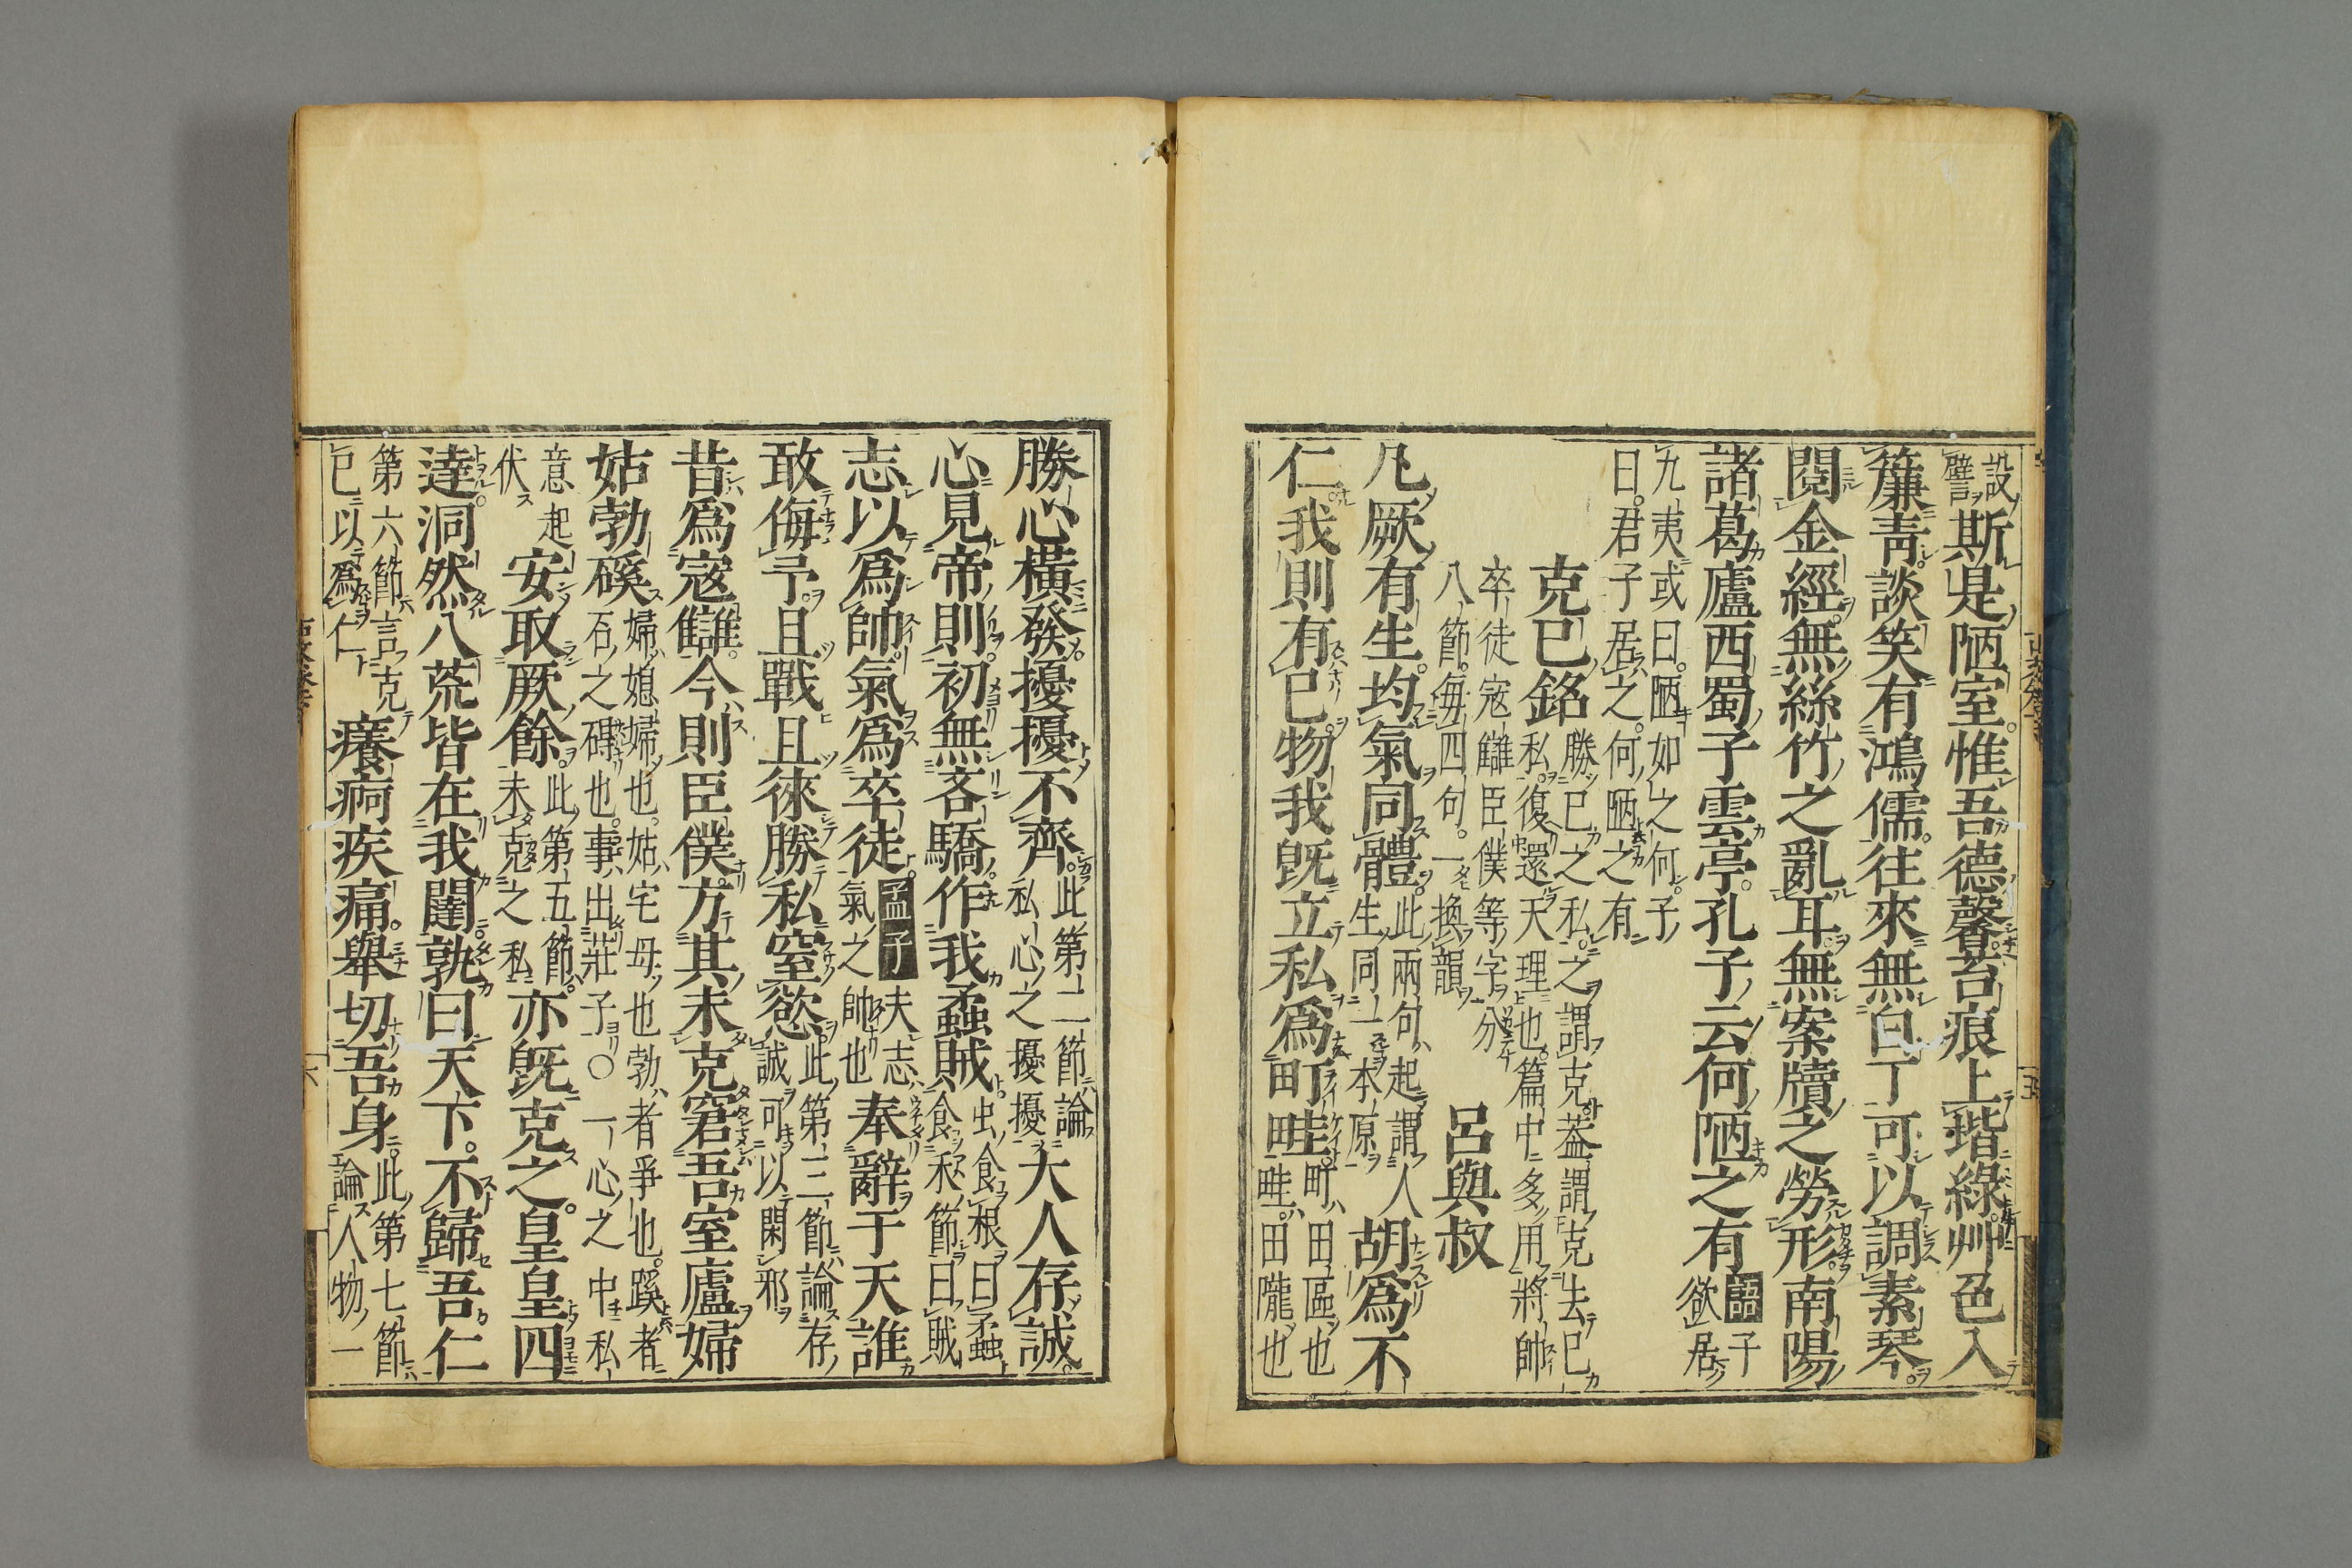 設譬斯是陋室惟吾德馨苔痕上堦綠艸色入
簾青談笑有鴻儒往來無白丁可以調素琴
閱金經無絲竹之亂耳無案牘之勞形南陽
諸葛廬西蜀子雲亭孔子云何陋之有語子欲居
九夷或曰陋如之何子
曰君子居之何陋之有
克已銘勝已之私之謂克葢謂克去已
私復還天理也篇中多用將帥
卒徒寇讎臣僕等字分
八節每四句一換韻
呂與叔
凡厥有生均氣同體此兩句起謂人
生同一本原胡爲不
仁我則有已物我旣立私爲町畦町田區也
畦田隴也
勝心橫發擾擾不齊此第二節論
私心之擾擾大人存誠
心見帝則初無吝驕作我蟊賊虫食根曰蟊
食禾節曰賊
志以爲帥氣爲卒徒孟子夫志
氣之帥也奉辭于天誰
敢侮予且戰且徠勝私窒慾此第三節論存
誠可以閑邪
昔爲寇讎今則臣僕方其未克窘吾室廬婦
姑勃磎婦媳婦也姑宅母也勃者爭也蹊者
石之磎也事出莊子〇一心之中私
意起
伏安取厥餘此第五節
未克之私亦旣克之皇皇四
達洞然八荒皆在我闥孰曰天下不歸吾仁
第六節言克
已以爲仁癢痾疾痛舉切吾身此第七節
論人物一